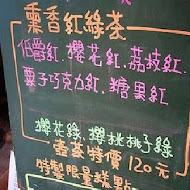 薰香紅綠茶
伯爵紅.櫻花紅.荔枝紅.
栗子巧克力紅.糖果紅
櫻花綠.櫻桃桃子綠
壺茶特價120元
特製限量糕點